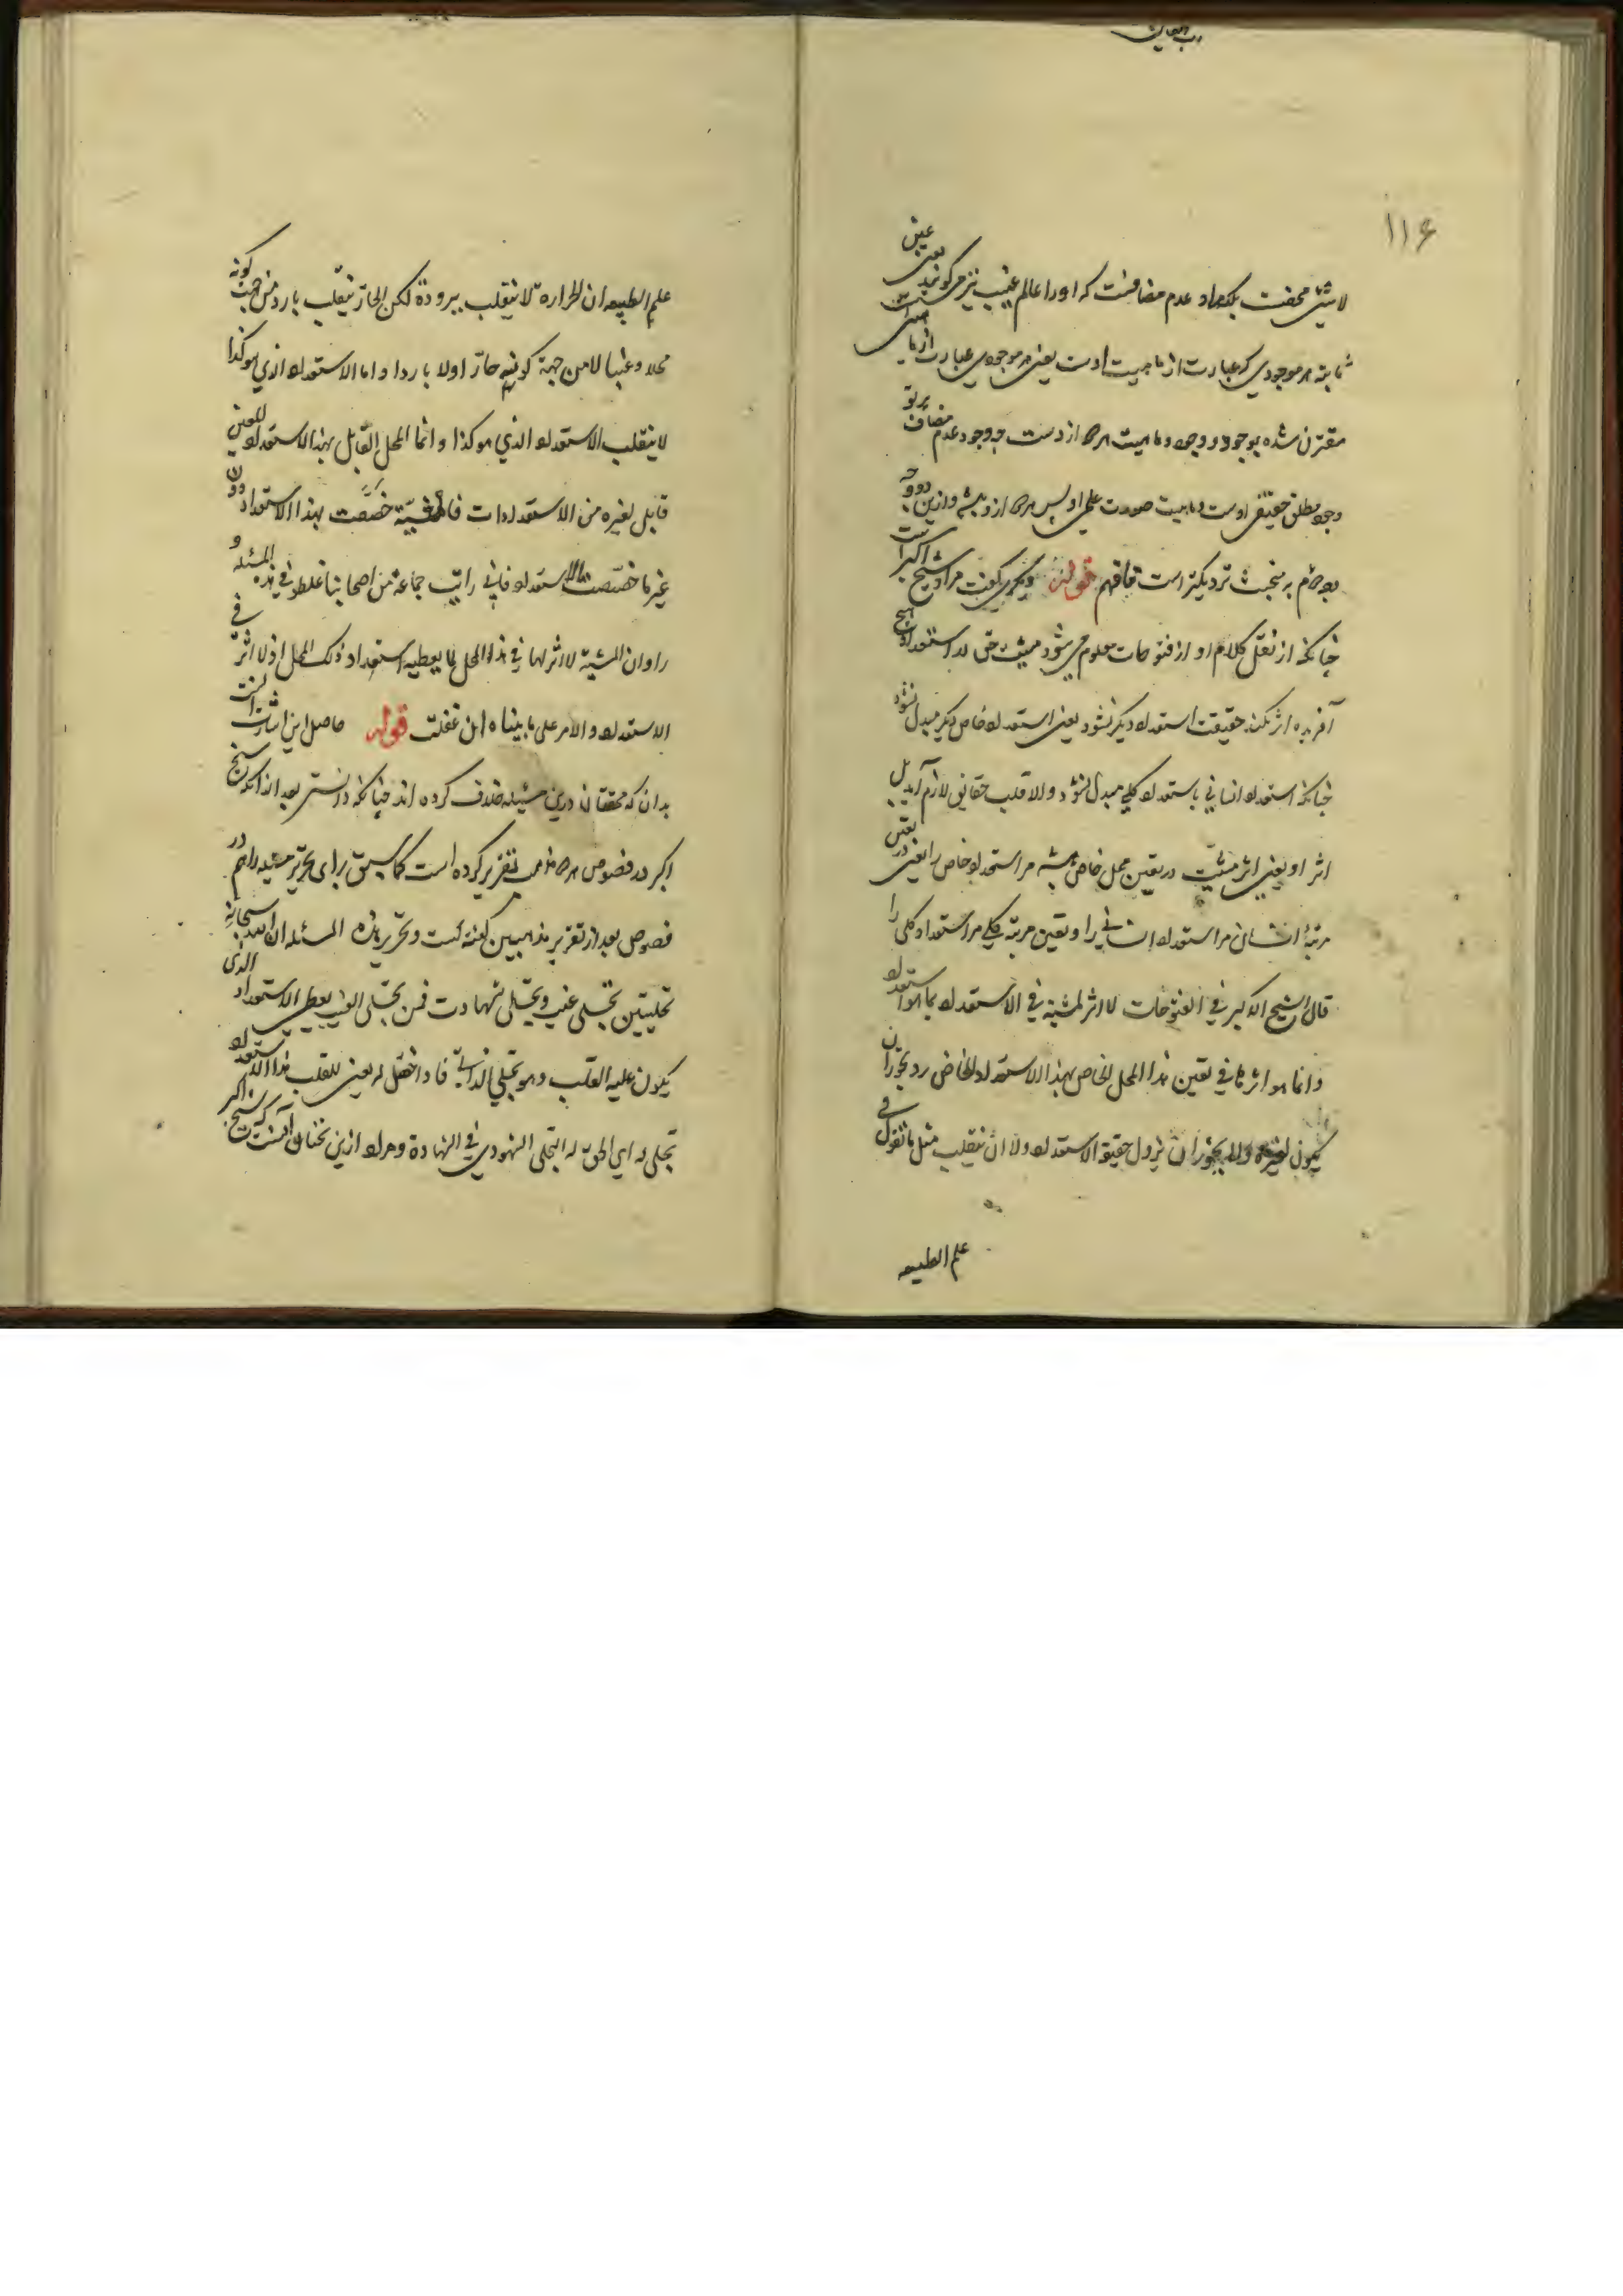 ١١٤
لا شئ محضست بلکه مراد عدم مضافست که اورا عالم غیب نیز میگویند یعنی عین
ثابته هر موجودی که عبارت از ماهیت اوست یعنی هر موجودی عبارت از ماهیتی است
مقترن شده بوجود و وجود و ماهیت هر دو ازوست چه وجود عدم مضاف پرتو
وجود مطلق حقیقی اوست و ماهیت صورت علمی او پس هر دو ازو باشد و ازین دو وجه
دوم بمبحث نزدیکتر است فافهم قوله دیگری گفت مراد شیخ اکبر است
چنانکه از نقل کلام او از فتوحات معلوم می شود مشیت حق در استعداد هیچ
آفریده اثر نکند حقیقت استعداد دیگر نشود یعنی استعداد خاص دیگر مبدل نشود
چنانکه استعداد انسانی باستعداد کلبی مبدل نشود والا قلب حقایق لازم آید بل
اثر او یعنی اثر مشیت در تعین محل خاص باشد مر استعداد خاص را یعنی در تعین
مرتبهٔ انسان مر استعداد انسانی را و تعین مرتبه کلبی مر استعداد کلبی را
قال الشیخ الاکبر فی الفتوحات لا اثر للمشیة فی الاستعداد بما هو استعداد
وانما هو اثرها فی تعین هذا المحل الخاص بهذا الاستعداد الخاص ویجوز ان
یکون لغیره ولا یجوز ان یزول حقیقة الاستعداد ولا ان ینقلب مثل ما نقول فی
علم الطبیعه
علم الطبیعه ان الحرارة لا ینقلب برودة لکن الحار ینقلب باردا من جهت کونه
محلا وعینا لا من جهة کونه حار اولا باردا واما الاستعداد الذی هو کذا
لا ینقلب الاستعداد الذی هو کذا وانما المحل القابل بهذا الاستعداد المعین
قابل لغیره من الاستعدادات فالمشیة خصصت بهذا الاستعداد دون
غیرها خصصت الاستعداد فانی رایت جماعة من اصحابنا غلطوا فی هذه المسئلة و
راوا ان المشیة لا اثر لها فی هذا المحل لما یعطیه استعداد ذلک المحل اذ لا اثر فی
الاستعداد والامر علی ما بیناه ان غفلت قوله حاصل این اشارت آنست
بدان که محققان درین مسئله خلاف کرده اند چنانکه دانستی بعد از آنکه شیخ
اکبر در فصوص هر دو مذهب تقریر کرده است کما سبق برای تحریر مسئله هم در
فصوص بعد از تقریر مذهبین گفته است وتحریر هذه المسئله ان لله سبحانه
تجلیین تجلی غیب وتجلی شهادت فمن تجلی الغیب یعطی الاستعداد الذی
یکون علیه القلب وهو تجلی الذاتی فاذا حصل له یعنی للقلب هذا الاستعداد
تجلی له ای الحق له التجلی الشهودی فی الشهادة ومراد ازین سخنان آنست که شیخ اکبر